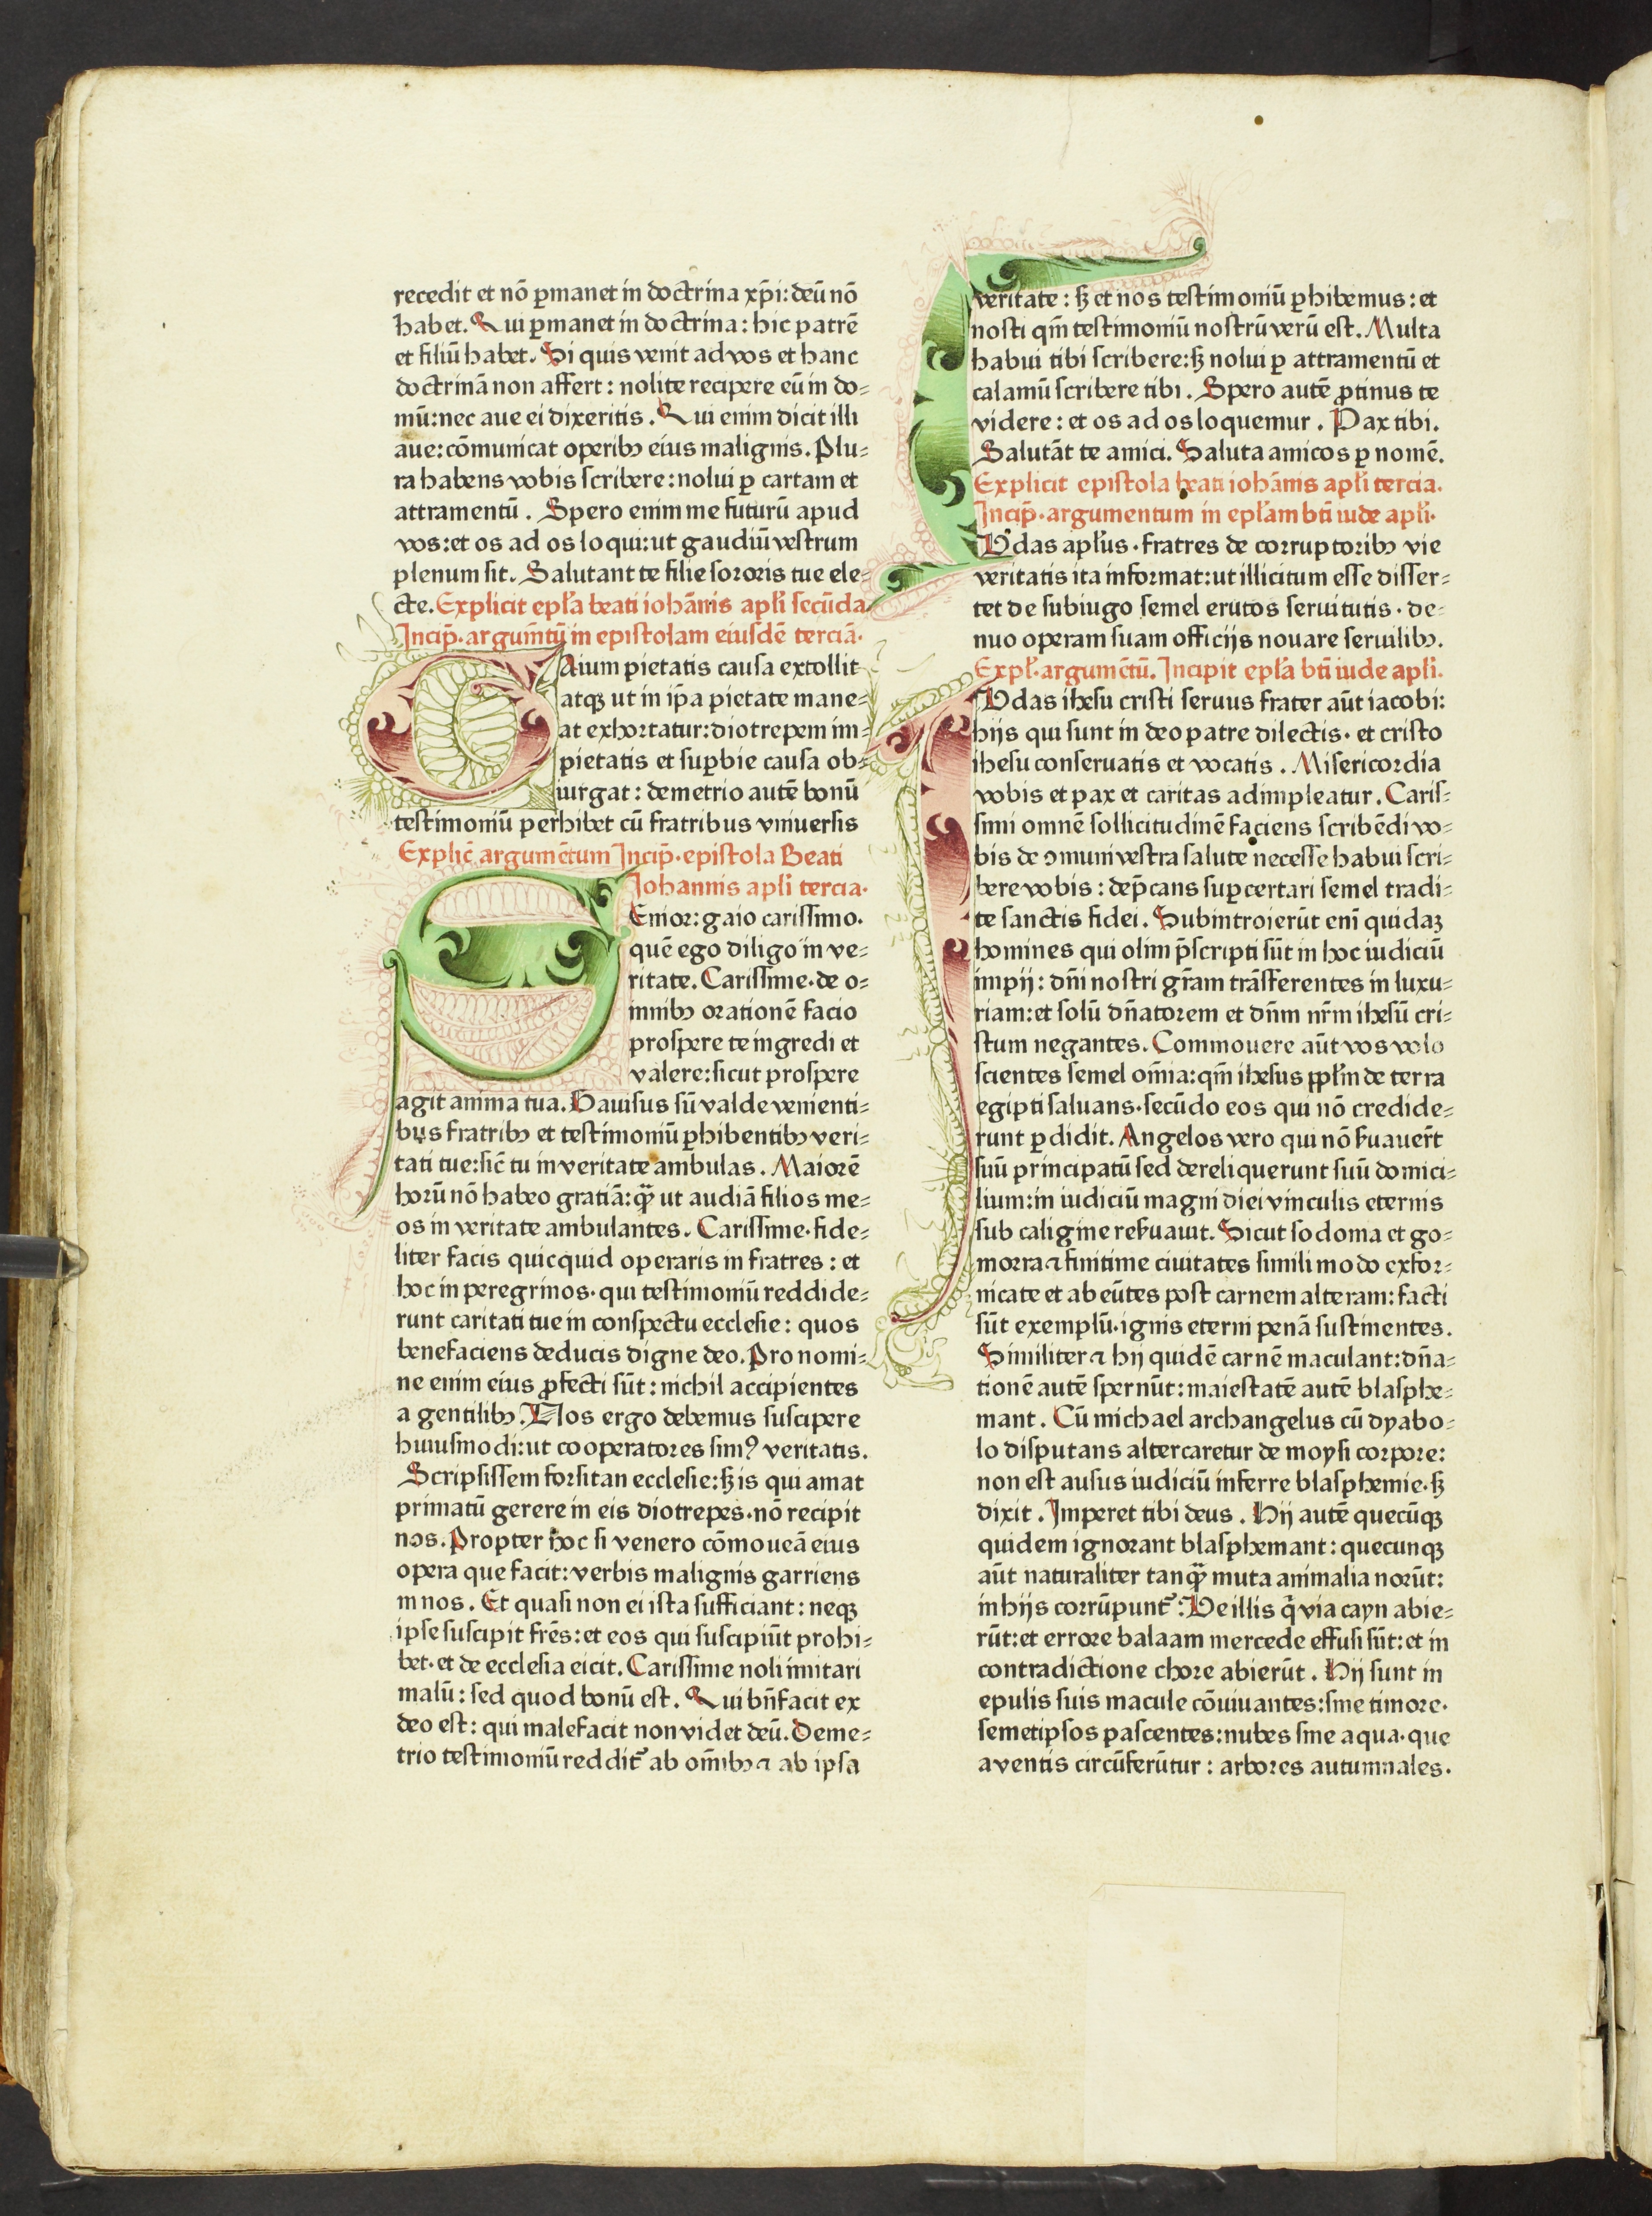 recedit et nō ꝑmanet in doctrina xp̄i: deū nō
habet. Qui ꝑmanet in doctrina: hic patrē
et filiū habet. Si quis venit ad vos et hanc
doctrinā non affert: nolite recipere eū in do⸗
mū: nec aue ei dixeritis. Qui enim dicit illi
aue: cōmunicat operibꝫ eius malignis. Plu⸗
ra habens vobis scribere: nolui ꝑ cartam et
attramentū. Spero enim me futurū apud
vos: et os ad os loqui: ut gaudiū vestrum
plenum sit. Salutant te filie sororis tue ele⸗
cte. Explicit epl̄a beati iohānis apl̄i secūda
Incip̄. argum̄tū in epistolam eiusdē terciā.
Aium pietatis causa extollit
atqꝫ ut in ip̄a pietate mane⸗
at exhortatur: diotrepem im⸗
pietatis et suꝑbie causa ob⸗
iurgat: demetrio autē bonū
testimoniū perhibet cū fratribus vniuersis
Explic̄ argumētum Incip̄. epistola Beati
Johannis apl̄i tercia.
Enior: gaio carissimo.
quē ego diligo in ve⸗
ritate. Carissime. de o⸗
mnibꝫ orationē facio
prospere te ingredi et
valere: sicut prospere
agit anima tua. Gauisus sū valde venienti⸗
bus fratribꝫ et testimoniū ꝑhibentibꝫ veri⸗
tati tue: sic̄ tu in veritate ambulas. Maiorē
horū nō habeo gratiā: qꝫ̄ ut audiā filios me⸗
os in veritate ambulantes. Carissime. fide⸗
liter facis quicquid operaris in fratres: et
hoc in peregrinos. qui testimoniū reddide⸗
runt caritati tue in conspectu ecclesie: quos
benefaciens deducis digne deo. Pro nomi⸗
ne enim eius ꝓfecti sūt: nichil accipientes
a gentilibꝫ. Nos ergo debemus suscipere
huiusmodi: ut cooperatores simꝰ veritatis.
Scripsissem forsitan ecclesie: sꝫ is qui amat
primatū gerere in eis diotrepes. nō recipit
nos. Propter hoc si venero cōmoueā eius
opera que facit: verbis malignis garriens
in nos. Et quasi non ei ista sufficiant: neqꝫ
ipse suscipit fr̄es: et eos qui suscipiūt prohi⸗
bet. et de ecclesia eicit. Carissime noli imitari
malū: sed quod bonū est. Qui bn̄facit ex
deo est: qui malefacit non videt deū. Deme⸗
trio testimoniū reddit᷑ ab om̄ibꝫ ⁊ ab ipsa
veritate: sꝫ et nos testimoniū ꝑhibemus: et
nosti qm̄ testimoniū nostrū verū est. Multa
habui tibi scribere: sꝫ nolui ꝑ attramentū et
calamū scribere tibi. Spero autē ꝓtinus te
videre: et os ad os loquemur. Pax tibi.
Salutāt te amici. Saluta amicos ꝑ nomē.
Explicit epistola beati iohānis apl̄i tercia.
Incip̄. argumentum in epl̄am bt̄i iude apl̄i.
Udas apl̄us. fratres de corruptoribꝫ vie
veritatis ita informat: ut illicitum esse disser⸗
tet de subiugo semel erutos seruitutis. de⸗
nuo operam suam officijs nouare seruilibꝫ.
Expl̄. argumētū. Incipit epl̄a bt̄i iude apl̄i.
Udas ihesu cristi seruus frater aūt iacobi:
hijs qui sunt in deo patre dilectis. et cristo
ihesu conseruatis et vocatis. Misericordia
vobis et pax et caritas adimpleatur. Caris⸗
simi omnē sollicitudinē faciens scribēdi vo⸗
bis de ↄmuni vestra salute necesse habui scri⸗
bere vobis: dep̄cans suꝑcertari semel tradi⸗
te sanctis fidei. Subintroierūt enī quidaꝫ
homines qui olim p̄scripti sūt in hoc iudiciū
impij: dn̄i nostri gr̄am trāsferentes in luxu⸗
riam: et solū dn̄atorem et dn̄m nr̄m ihesū cri⸗
stum negantes. Commouere aūt vos volo
scientes semel om̄ia: qm̄ ihesus ppl̄m de terra
egipti saluans. secūdo eos qui nō credide⸗
runt ꝑdidit. Angelos vero qui nō ẜuauer̄t
suū principatū sed dereliquerunt suū domici⸗
lium: in iudiciū magni diei vinculis eternis
sub caligine reẜuauit. Sicut sodoma et go⸗
morra ⁊ finitime ciuitates simili modo exfor⸗
nicate et abeūtes post carnem alteram: facti
sūt exemplū. ignis eterni penā sustinentes.
Similiter ⁊ hij quidē carnē maculant: dn̄a⸗
tionē autē spernūt: maiestatē autē blasphe⸗
mant. Cū michael archangelus cū dyabo⸗
lo disputans altercaretur de moysi corpore:
non est ausus iudiciū inferre blasphemie. sꝫ
dixit. Imperet tibi deus. Hij autē quecūqꝫ
quidem ignorant blasphemant: quecunqꝫ
aūt naturaliter tanqꝫ̄ muta animalia norūt:
in hijs corrūpunt᷑. Ve illis q̄ via cayn abie⸗
rūt: et errore balaam mercede effusi sūt: et in
contradictione chore abierūt. Hij sunt in
epulis suis macule cōuiuantes: sine timore.
semetipsos pascentes: nubes sine aqua. que
a ventis circūferūtur: arbores autumnales.